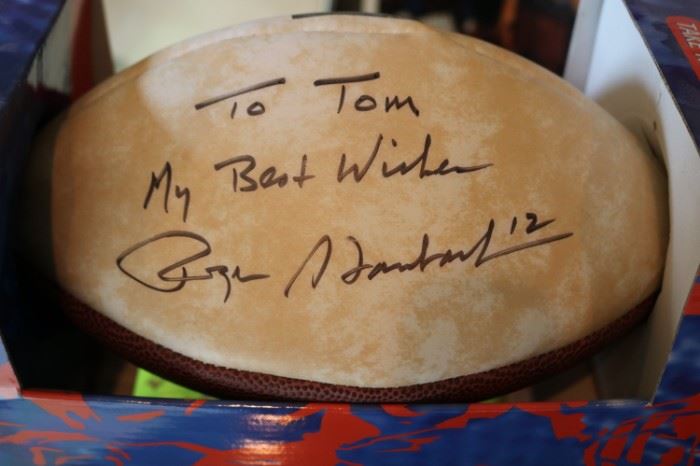 To Tom
My Best Wishes
Roger Staubach 12
TAKE